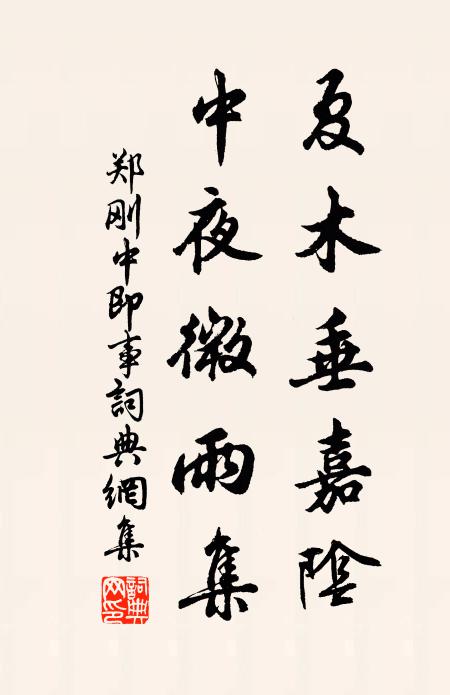 夏木垂嘉陰
中夜微雨集
郑刚中即事詞典網集
詞典網印